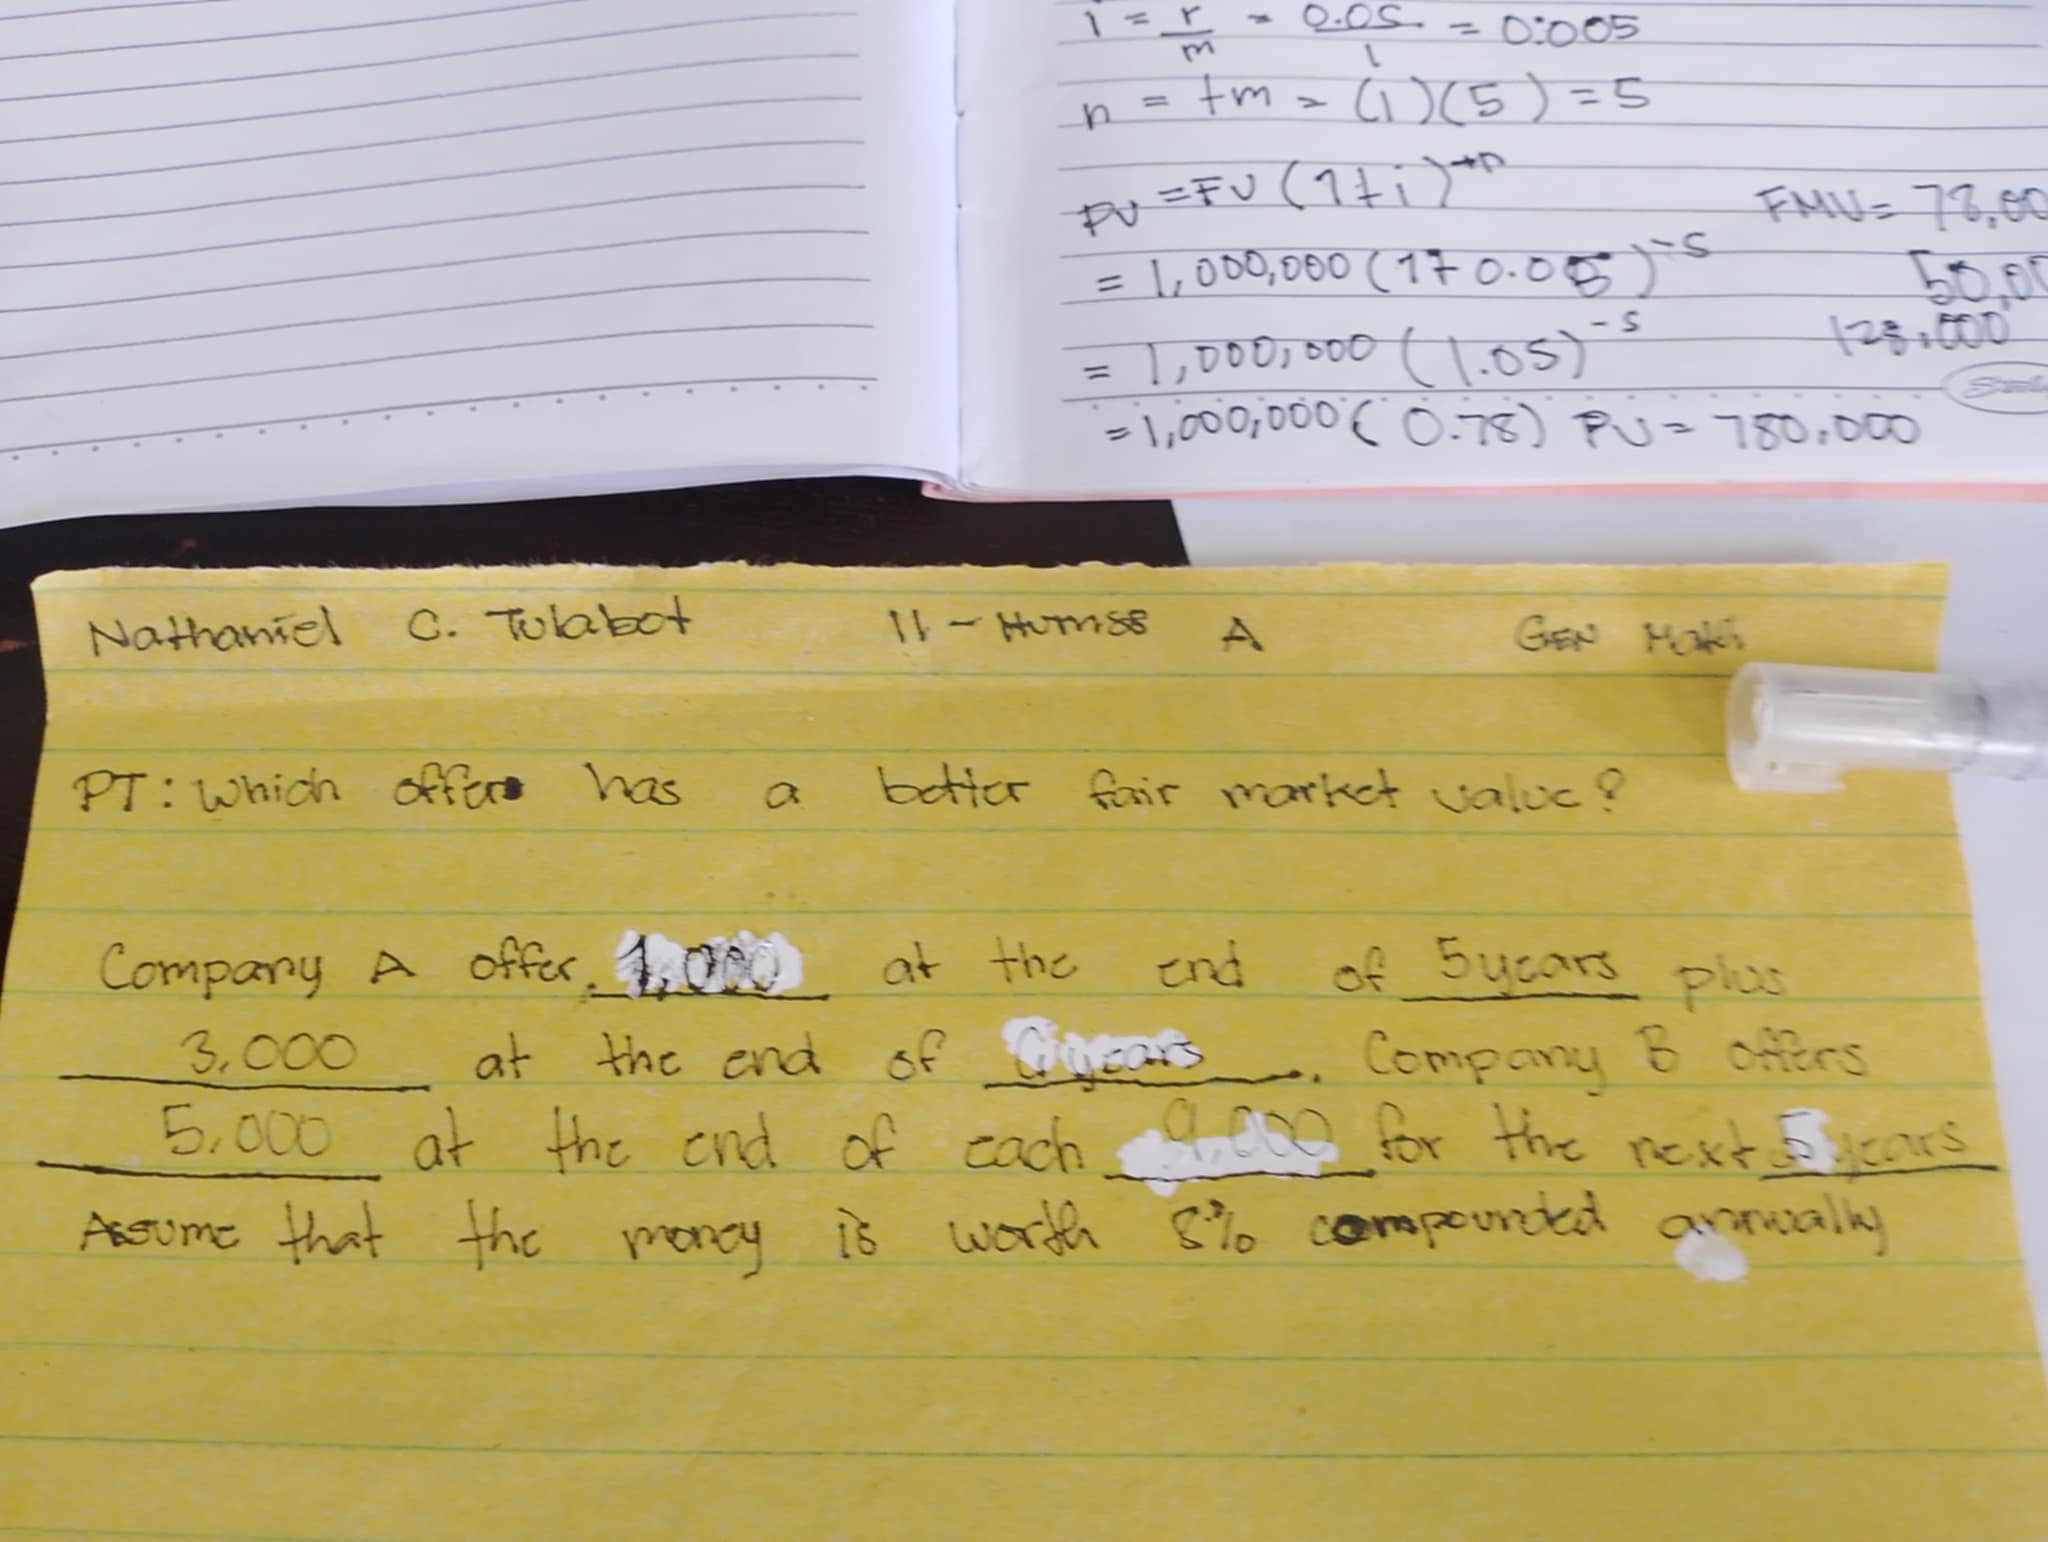 i = r/m = 0.05/1 = 0.005
n = tm = (1)(5) = 5
PV = FV (1+i)
FMV = 78,00
= 1,000,000 (1+0.05)^-5
50,00
= 1,000,000 (1.05)^-5
128,000
= 1,000,000 (0.78) PV = 780,000
Nathaniel C. Tulabot 11 - Humss A GEN Math
PT: Which offer has a better fair market value?
Company A offer 1,000 at the end of 5 years plus
3,000 at the end of years. Company B offers
5,000 at the end of each 9,000 for the next 5 years
Assume that the money is worth 8% compounded annually